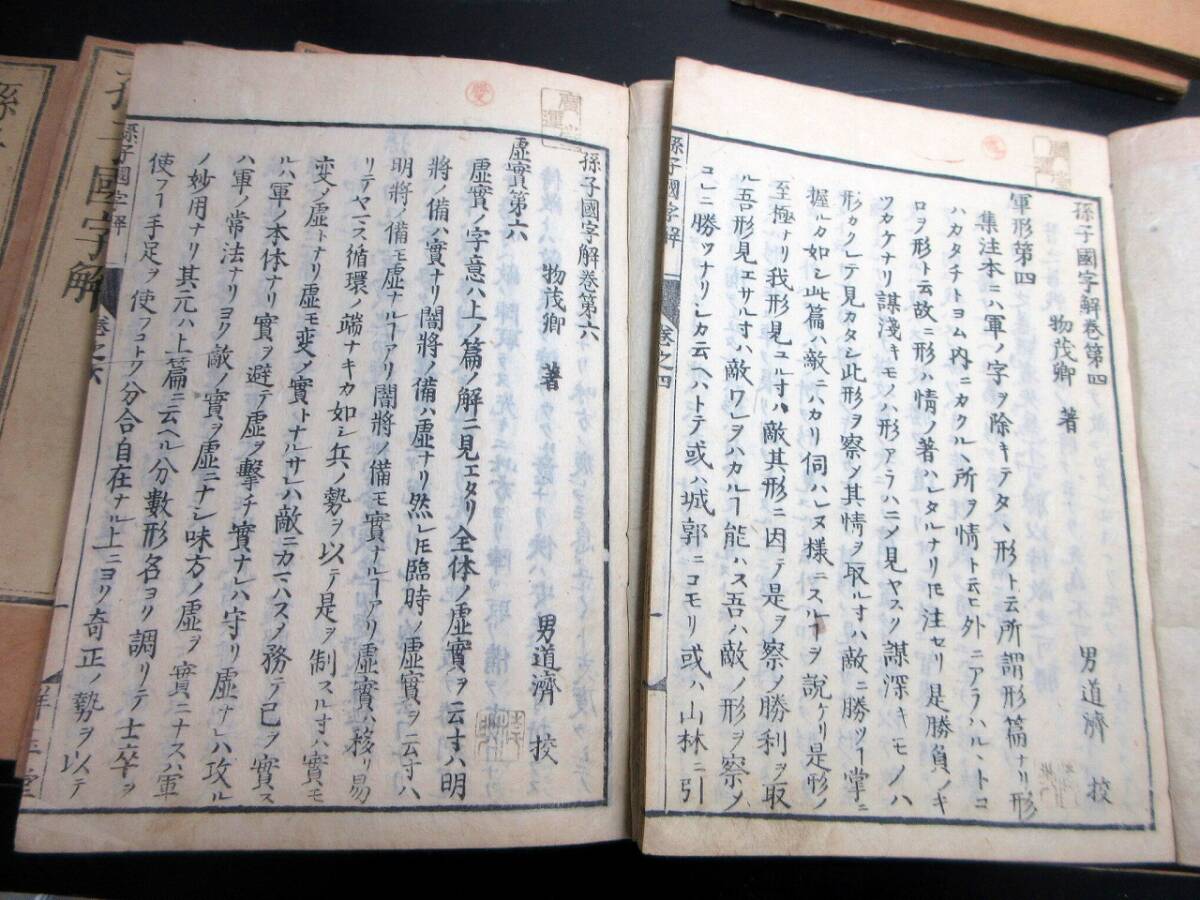 孫子國字解卷第四
物茂卿 著
男道濟 校
軍形第四
集注本ニハ軍ノ字ヲ除キテタヽ形ト云所謂形篇ナリ形
ハカタチトヨム内ニカクルヽ所ヲ情ト云ヒ外ニアラハルヽトコ
ロヲ形ト云故ニ形ハ情ノ著ハレタルナリトモ注セリ是勝負ノキ
ツカケナリ謀淺キモノハ形アラハニ〆見ヤスク謀深キモノハ
形カクレテ見カタシ此形ヲ察〆其情ヲ取ル寸ハ敵ニ勝ツヿ掌ニ
握ルカ如シ此篇ハ敵ニハカリ伺ハレヌ樣ニスルヲ說ケリ是形ノ
至極ナリ我形見ユル寸ハ敵其形ニ因テ是ヲ察〆勝利ヲ取
ル吾形見エサル寸ハ敵ワレヲハカルヿ能ハス吾ハ敵ノ形ヲ察〆
コレニ勝ツナリシカ云ヘハトテ或ハ城郭ニコモリ或ハ山林ニ引
孫子國字解
卷之四
孫子國字解卷第六
物茂卿 著
男道濟 校
虛實第六
虛實ノ字意ハ上ノ篇ノ解ニ見エタリ全体ノ虛實ヲ云寸ハ明
將ノ備ハ實ナリ闇將ノ備ハ虛ナリ然レ𪜈臨時ノ虛實ヲ云寸ハ
明將ノ備モ虛ナルヿアリ闇將ノ備モ實ナルヿアリ虛實ハ移リ易
リテヤマス循環ノ端ナキカ如シ兵ノ勢ヲ以テ是ヲ制スル寸ハ實モ
變〆虛トナリ虛モ變〆實トナルサレハ敵ニカマハス〆務テ己ヲ實ス
ルハ軍ノ本体ナリ實ヲ避テ虛ヲ擊チ實ナレハ守リ虛ナレハ攻ル
ハ軍ノ常法ナリヨク敵ノ實ヲ虛ニナシ味方ノ虛ヲ實ニナスハ軍
ノ妙用ナリ其元ハ上篇ニ云ヘル分數形名ヨリ調リテ士卒ヲ
使フヿ手足ヲ使フコトク分合自在ナル上ニヨリ奇正ノ勢ヲ以テ
孫子國字解
卷之六
子國字解
孫子